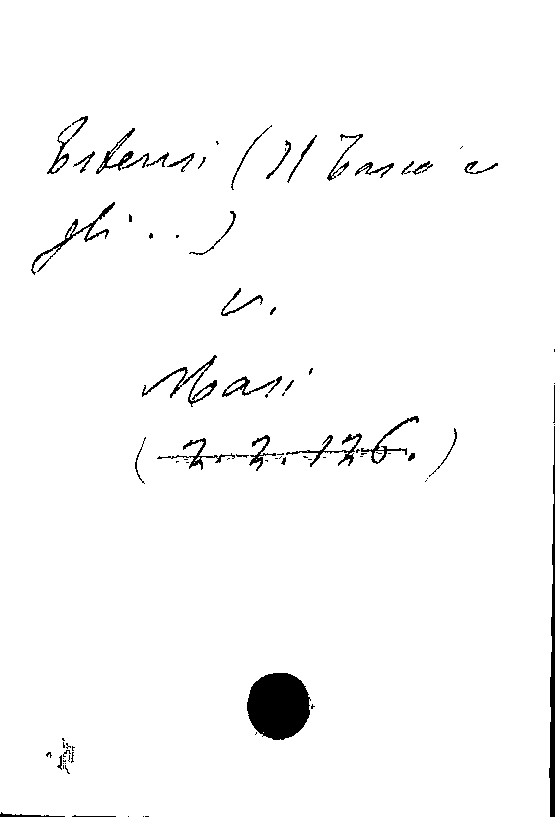 Estensi (Il Tasso e
gli...)
v.
Masi
(2.2.126.)